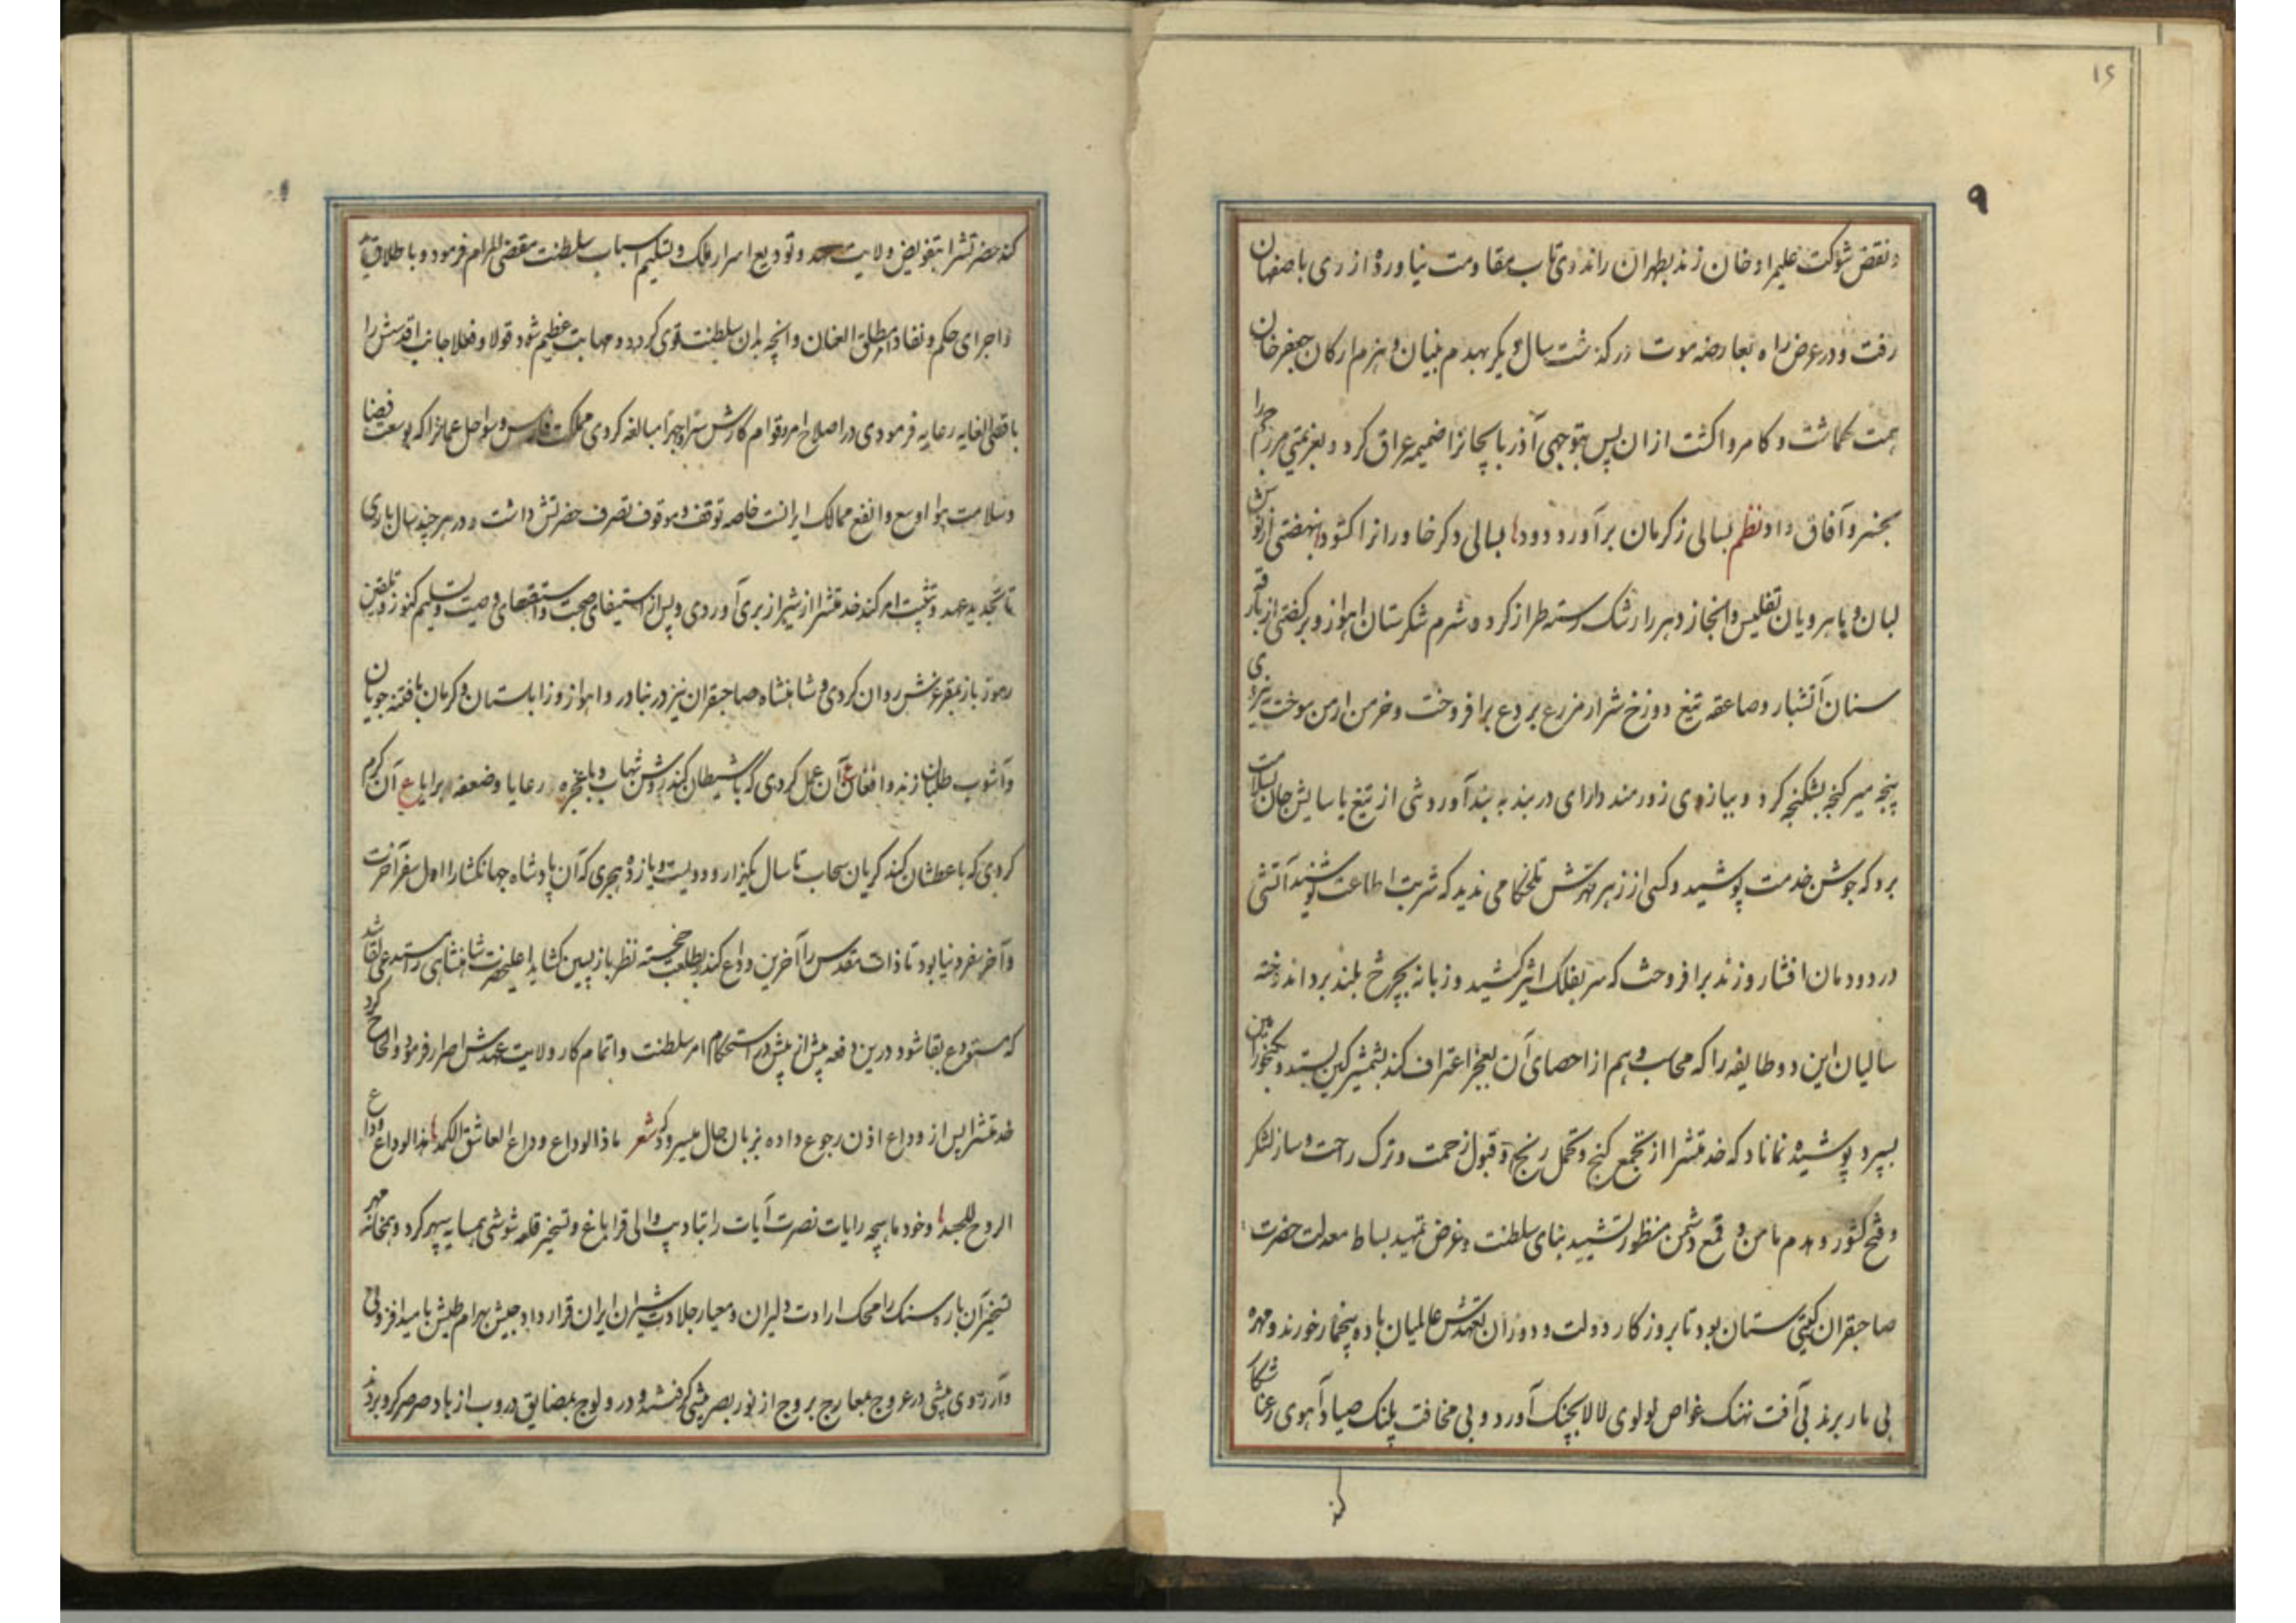 ۱۶
۹
و نقض شوکت علیمراد خان زند بطهران راند وی تاب مقاومت نیاورده از ری باصفهان
رفت و در عرض راه بعارضه موت در گذشت سال دیگر بهدم بنیان و هزم ارکان جعفر خان
همت گماشت و کامروا گشت از ان پس بتوجهی آذربایجانرا ضمیمه عراق کرد و بعزیمتی
بخسرو آفاق داد نظم بسالی ز کرمان برآورد دود بسالی دکر خاورانرا کشود بنهضتی از
لبان و ماهرویان تفلیس و ابخاز دهر را رشک رسته طراز کرد و شرم شکرستان اهواز و برکفتی از
سنان آتشبار و صاعقه تیغ دوزخ شرار مزرع بردع برافروخت و خرمن ارمن سوخت
پنجه میر کنجه بشکنجه کرد و ببازوی زورمند دارای دربند به بند آورد وشی از تیغ یاسایش جان بسلامت
برد که جوشن خدمت پوشید و کسی از زهر قهرش تلخکامی ندید که شربت اطاعت نوشید آتشی
در دودمان افشار و زند برافروخت که سر بفلک اثیر کشید و زبانه بچرخ بلند برد اندوخته
سالیان این دو طایفه را که محاسب وهم از احصای آن بعجز اعتراف کند بشمشیر کین بستد و بگنجور
بسپرد پوشیده نماناد که خدمتشرا از تجمع کنج و تحمل رنج و قبول زحمت و ترک راحت و ساز لشکر
و فتح کشور و هدم مامن و قمع دشمن منظور تشیید بنای سلطنت و غرض تمهید بساط معدلت حضرت
صاحبقران کیتی ستان بود تا بروزکار دولت و دوران بعهدش عالمیان باده بیخمار خورند و مهره
بی مار برند بی آفت نهنک غواص لولوی لالا بچنک آورد و بی مخافت پلنک صیاد آهوی رعنا شکار
کند
کند حضرتشرا بتفویض ولایت عهد و تودیع اسرار ملک و تسلیم اسباب سلطنت مقضی المرام فرمود و باطلاق
و اجرای حکم و نفاذ امر مطلق العنان و انچه بدان سلطنت قوی کردد و مهابت عظیم شود قولا و فعلا جانب اقدسش را
باقصی الغایه رعایه فرمودی در اصلاح امر و قوام کارش سرا و جهرا مبالغه کردی مملکت فارس و سواحل عمانرا که بوسعت فضا
و سلامت هوا اوسع و انفع ممالک ایرانست خاصه توقف و موقوف تصرف حضرتش داشت و در هر چند سال باری
تا تجدید عهد و تثبیت امر کند خدمتشرا از شیراز بری آوردی و پس از استیفای صحبت و استقصای وصیت و تسلیم کنوز و تلقین
رموز باز بمقر عزش روان کردی و شاهنشاه صاحبقران نیز در بنادر و اهواز و زابلستان و کرمان با فتنه جویان
و آشوب طلبان زند و افغان ع آن عمل کردی که با شیطان کند روشن شهاب و با عجزه رعایا و ضعفه برایا ع آن کرم
کردی که با عطشان کند کریان سحاب تا سال یکهزار و دویست و یازده هجری که آن پادشاه جهانکشا را اول سفر آخرت
و آخر سفر دنیا بود تا ذات مقدس را آخرین وداع کند بطلعت خجسته نظر بازپسین کشاید اعلیحضرت شاهنشاهی را مستدعی لقا شد
که مستودع بقا شود درین دفعه بیش از پیش در استحکام امر سلطنت و اتمام کار ولایت عهدش اصرار فرمود و الحاح کرد
خدمتشرا پس از وداع اذن رجوع داده بزبان حال میسرود که شعر ماذا الوداع وداع العاشق الکمد هذا الوداع وداع
الروح للجسد و خود ماهچه رایات نصرت آیات را بتادیب والی قراباغ و تسخیر قلعه شوشی همسایه سپهر کرد و همخانه مهر
تسخیر آن باره سنک را محک ارادت دلیران و معیار جلادت شیران ایران قرار داد و جیش بهرام طیش بامید افزونی
و آرزوی بیشی در عروج معارج بروج از نور بصر پیشی کرفتند و در ولوج بمضایق دروب از باد صرصر کرو بردند